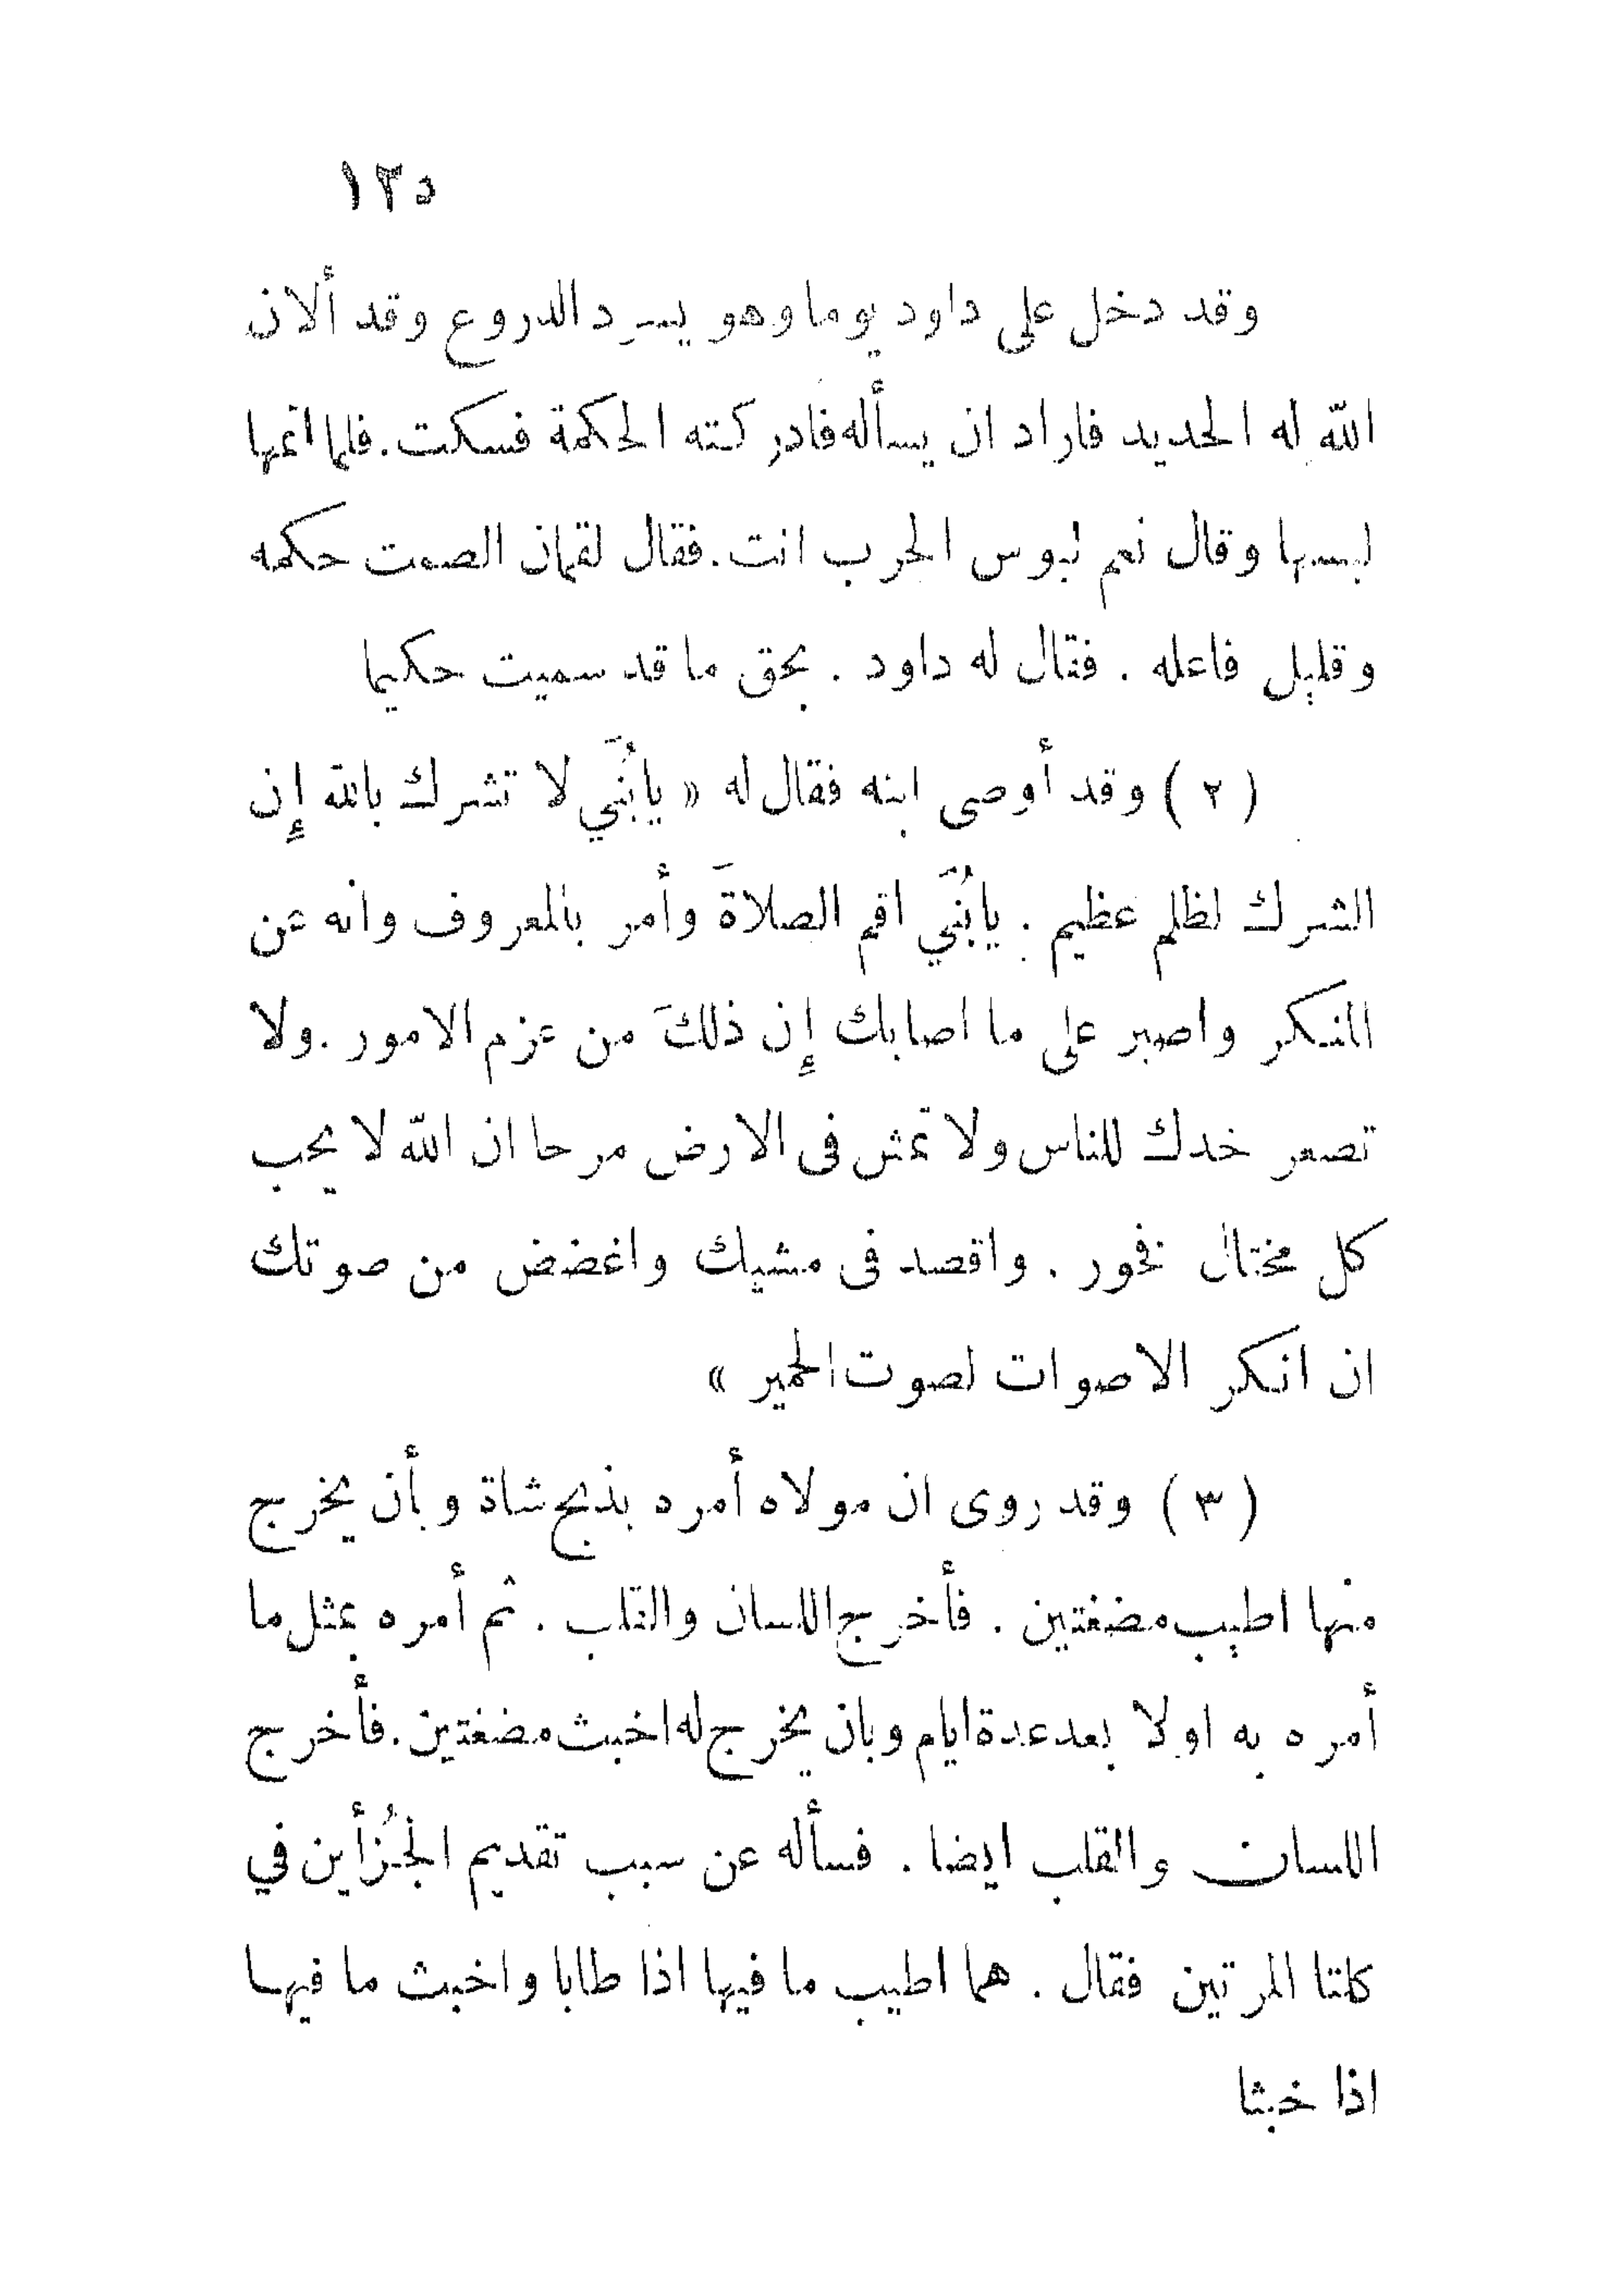 ١٣٥
وقد دخل على داود يوما وهو يسرد الدروع وقد ألان
الله له الحديد فاراد ان يسأله فادركته الحكمة فسكت. فلما اتمها
لبسها وقال نعم لبوس الحرب انت. فقال لقمان الصمت حكمه
وقليل فاعله . فقال له داود . بحق ما قد سميت حكيما
( ٢ ) وقد أوصى ابنه فقال له « يابُنَّي لا تشرك بالله إِن
الشرك لظلم عظيم . يابُنَّي اقم الصلاةَ وأمر بالمعروف وانه عن
المنكر واصبر على ما اصابك إِن ذلكَ من عزم الامور . ولا
تصعر خدك للناس ولا تمش فى الارض مرحا ان الله لا يحب
كل مختال فخور . واقصد فى مشيك واغضض من صوتك
ان انكر الاصوات لصوت الحمير »
( ٣ ) وقد روى ان مولاه أمره بذبح شاة وبأن يخرج
منها اطيب مضغتين . فأخرج اللسان والقلب . ثم أمره بمثل ما
أمره به اولا بعد عدة ايام وبان يخرج له اخبث مضغتين . فأخرج
اللسان والقلب ايضا . فسأله عن سبب تقديم الجُزأين في
كلتا المرتين فقال . هما اطيب ما فيها اذا طابا واخبث ما فيها
اذا خبثا